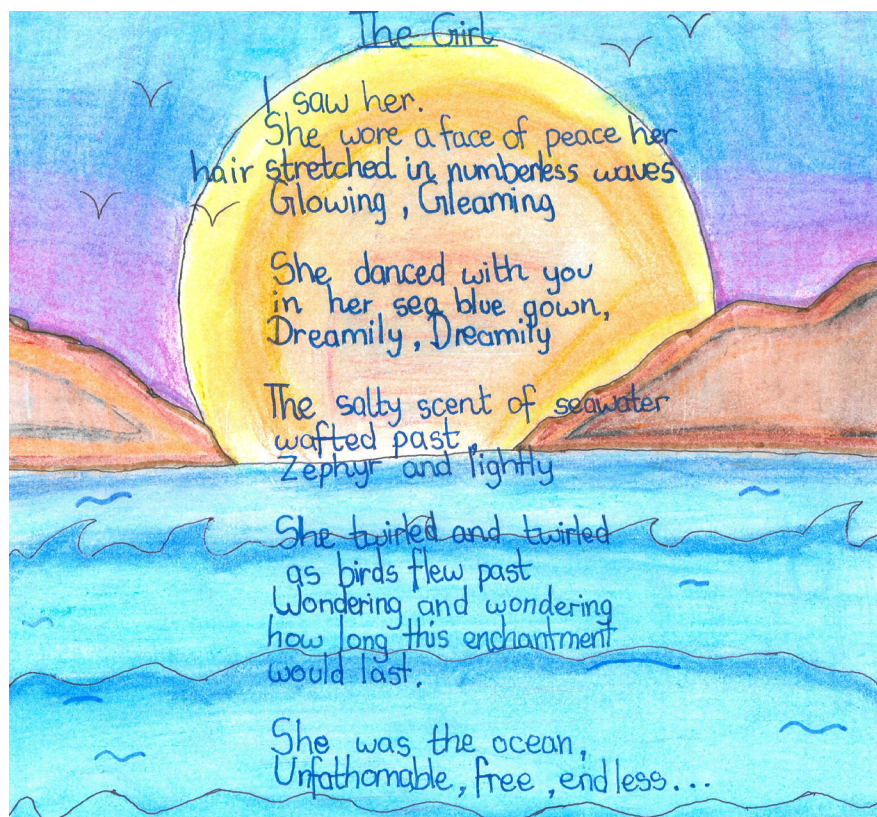 The Girl
I saw her.
She wore a face of peace her
hair stretched in numberless waves
Glowing, Gleaming
She danced with you
in her sea blue gown,
Dreamily, Dreamily
The salty scent of seawater
wafted past,
Zephyr and lightly
She twirled and twirled
as birds flew past
Wondering and wondering
how long this enchantment
would last.
She was the ocean,
Unfathomable, free, endless...